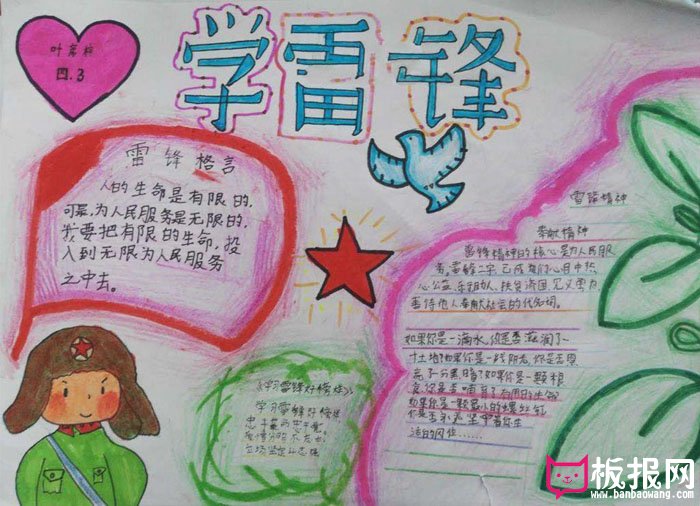 四.3
学雷锋
雷锋格言
人的生命是有限的,
可是,为人民服务是无限的,
我要把有限的生命,投
入到无限为人民服务
之中去。
雷锋精神
奉献精神
雷锋精神的核心是为人民服
务,雷锋二字,已成我们心目中热
心公益,乐于助人,扶贫济困,见义勇为,
善待他人,奉献社会的代名词。
如果你是一滴水,你是否滋润了一
寸土地?如果你是一线阳光,你是否照
亮了一分黑暗?如果你是一颗粮
食,你是否哺育了有用的生命
如果你是一颗最小的螺丝钉
你是否永远坚守着你生
活的岗位......
《学习雷锋好榜样》
学习雷锋好榜样
板报网
www.banbaowang.com